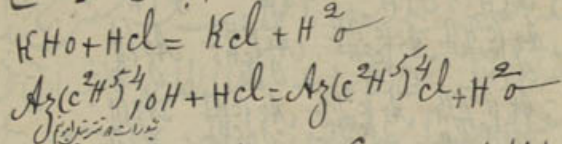 KHo + Hcl = Kcl + H²o
Az(c²H⁵)⁴, oH + Hcl = Az(c²H⁵)⁴cl + H²o